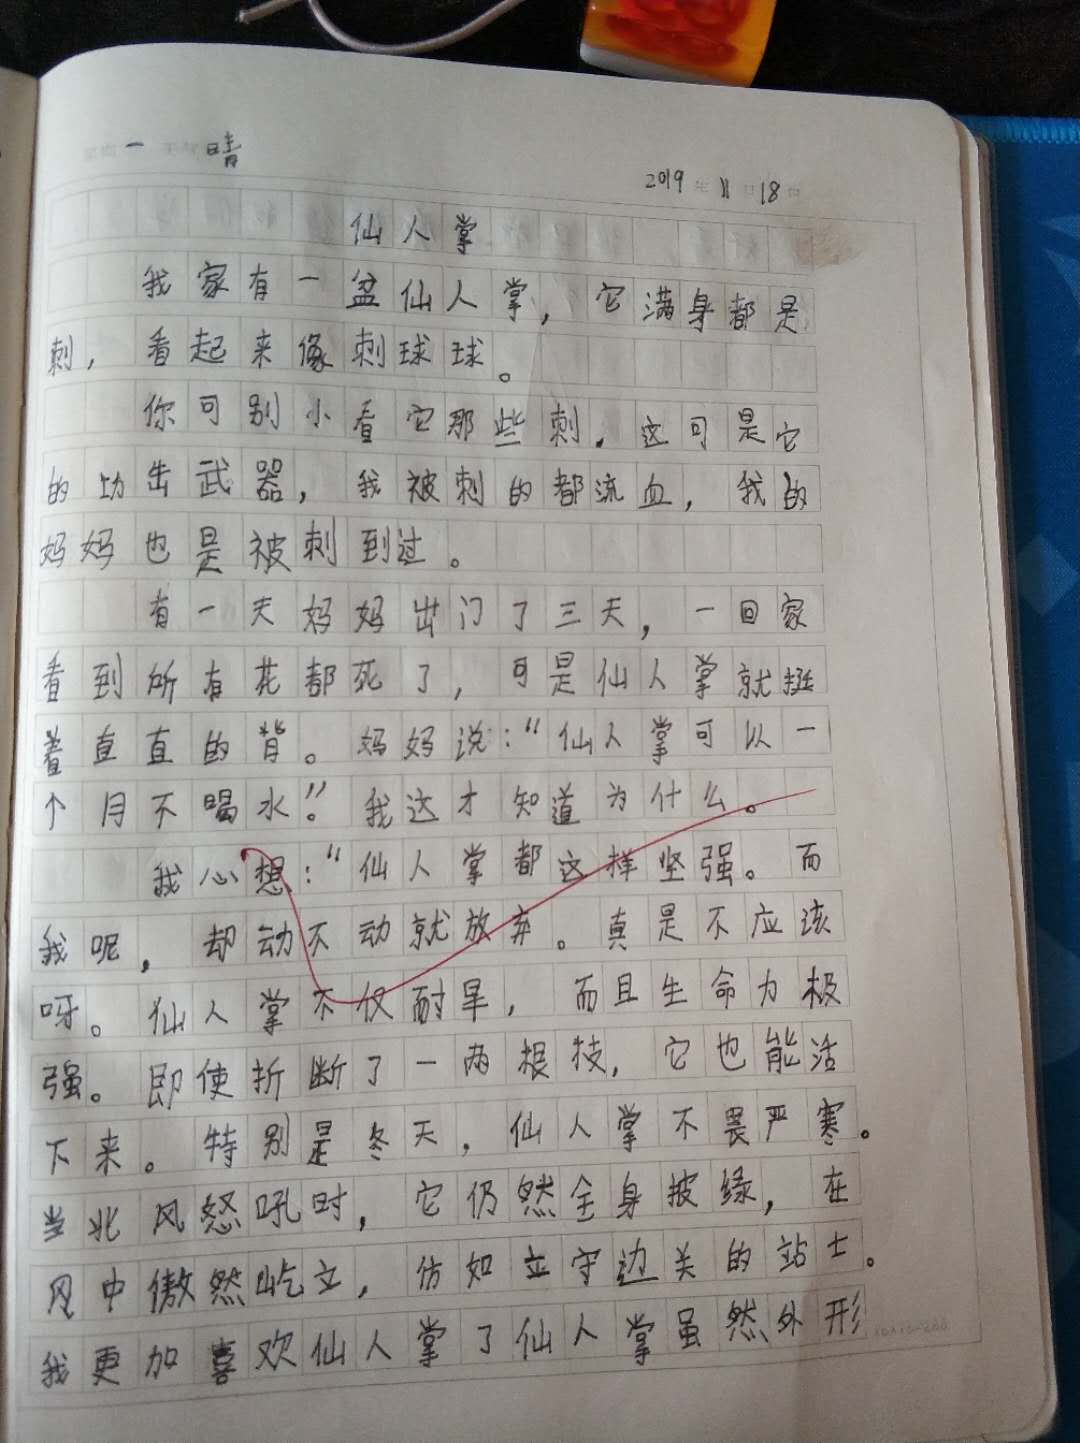 星期一 天气晴
2019年11月18日
仙人掌
我家有一盆仙人掌，它满身都是
刺，看起来像刺球球。
你可别小看它那些刺.这可是它
的功击武器，我被刺的都流血，我的
妈妈也是被刺到过。
有一天妈妈出门了三天，一回家
看到所有花都死了，可是仙人掌就挺
着直直的背。妈妈说：“仙人掌可以一
个月不喝水。”我这才知道为什么。
我心想：“仙人掌都这样坚强。而
我呢，却动不动就放弃。真是不应该
呀。仙人掌不仅耐旱，而且生命力极
强。即使折断了一两根技，它也能活
下来。特别是冬天，仙人掌不畏严寒。
当北风怒吼时，它仍然全身披绿，在
风中傲然屹立，仿如立守边关的站士。
我更加喜欢仙人掌了仙人掌虽然外形